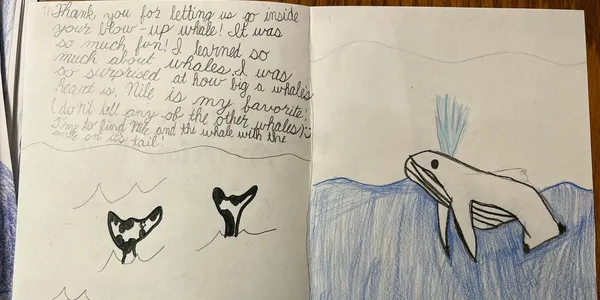 Thank you for letting us go inside
your blow-up whale! It was
so much fun! I learned so
much about whales. I was
so surprised at how big a whale's
heart is. Nile is my favorite.
(don't tell any of the other whales)
to find Nile and the whale with the
on its tail!